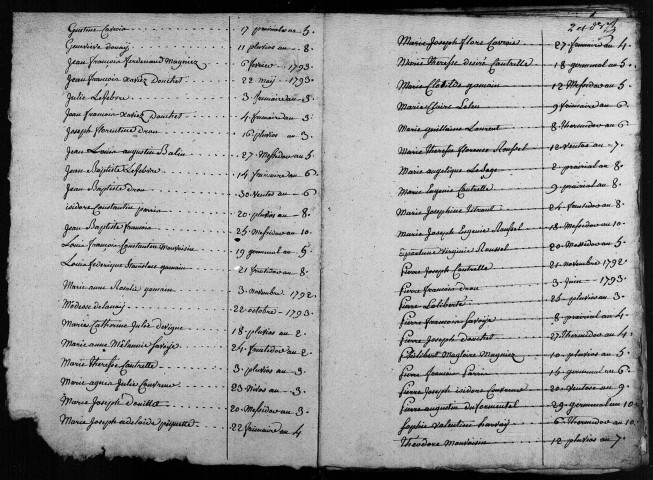 Gustine Cavroix 17 prairial an 5.
Genevieve Douay 11 pluvios an 8.
Jean François ferdenaud Magniez 6 fevrier 1793
Jean francois xavier Douchet 22 may 1793
Julie Lefebvre 3 frimaire an 3
Jean francois xavier Douchet 4 frimaire an 3
Joseph florentine Drou 16 pluvios an 3.
Jean Louis augustin Balin 27 Messidor an 5
Jean Baptiste Lefebvre 14 frimaire an 6
Jean Baptiste Drou 30 Ventos an 6
isidore Constantin 20 pluvios an 8.
Jean Baptiste francois 25 Messidor an 10
Louis francois Constantin Mauvoisin 19 germinal an 5
Louis federique Stanislas gamain 21 fructidor an 8.
Marie anne Rosalie gamain 3 novembre 1792
Modeste delanoij 22 octobre 1793
Marie Catherine Julie Devigne 18 pluvios an 2
Marie anne Melannie Savoije 24 fructidor an 2
Marie Therese Cantrelle 3 pluvios an 3
Marie agnia Julie 23 Nivos an 3
Marie Joseph Douillet 20 Messidor an 3
Marie Joseph adelaide piquette 22 frimaire an 4
2 et 8 3
Marie Joseph flore Cavroix 27 frimaire an 4.
Marie Therese desiré Cantrelle 18 germinal an 5
Marie Clotilde gamain 12 Messidor an 5
Marie Claire Leleu 9 frimaire an 6
Marie guillaine Laurent 8 thermidor an 6
Marie Therese florence Roussel 12 ventos an 7
Marie angelique Lesage 2 prairial an 8
Marie Eugenie Cantrelle 9 prairial an 8.
Marie Josephine 24 fructidor an 8
Marie Joseph Eugenie Roussel 18 Messidor an 10
Virginie Roussel 20 Messidor an 5
Pierre Joseph Cantrelle 21 novembre 1792
Pierre francois Drou 3 Juin 1793
Pierre Laliberté 25 pluvios an 3
Pierre francois Savoije 8 prairial an 4
Pierre Joseph Douchet 27 thermidor an 4
Philibert Magloire Magniez 10 pluvios an 5
Pierre francois 15 germinal an 6
Pierre Joseph isidore 20 ventose an 9
Pierre augustin duformentel 29 germinal an 10
Sophie Valentine 6 thermidor an 10
Théodore Mauvoisin 12 pluvios an 7.